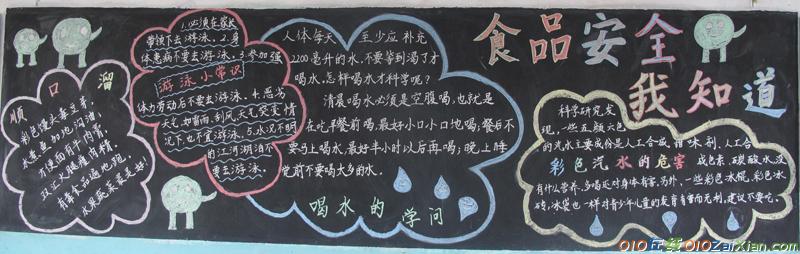 顺口溜
彩色馒头毒豆芽,
水煮鱼加地沟油,
方便面有牛肉膏,
双汇火腿瘦肉精,
有毒食品遍地现,
1.必须在家长
带领下去游泳。2.身
体患病不要去游泳。3.参加强
游泳小常识
体力劳动后不要去游泳。4.恶劣
天气如雷雨、刮风天气突变情
况下,也不宜游泳。5.水况不明
的江河湖泊不
要去游泳。
人体每天 至少应补充
2200毫升的水。不要等到渴了才
喝水,怎样喝水才科学呢?
清晨喝水必须是空腹喝,也就是
在吃早餐前喝,最好小口小口地喝;餐后不
要马上喝水,最好半小时以后再喝;晚上睡
觉前不要喝太多的水。
喝水的学问
食品安全
我知道
科学研究发
现,一些五颜六色
的汽水主要成份是人工合成甜味剂、人工合
彩色汽水的危害
成色素、碳酸水,没
有什么营养,多喝反对身体有害。另外,一些彩色冰棍、彩色冰
砖、冰袋也一样对青少年儿童的发育有害而无利,建议不要吃。
010在线010ZaiXian.com